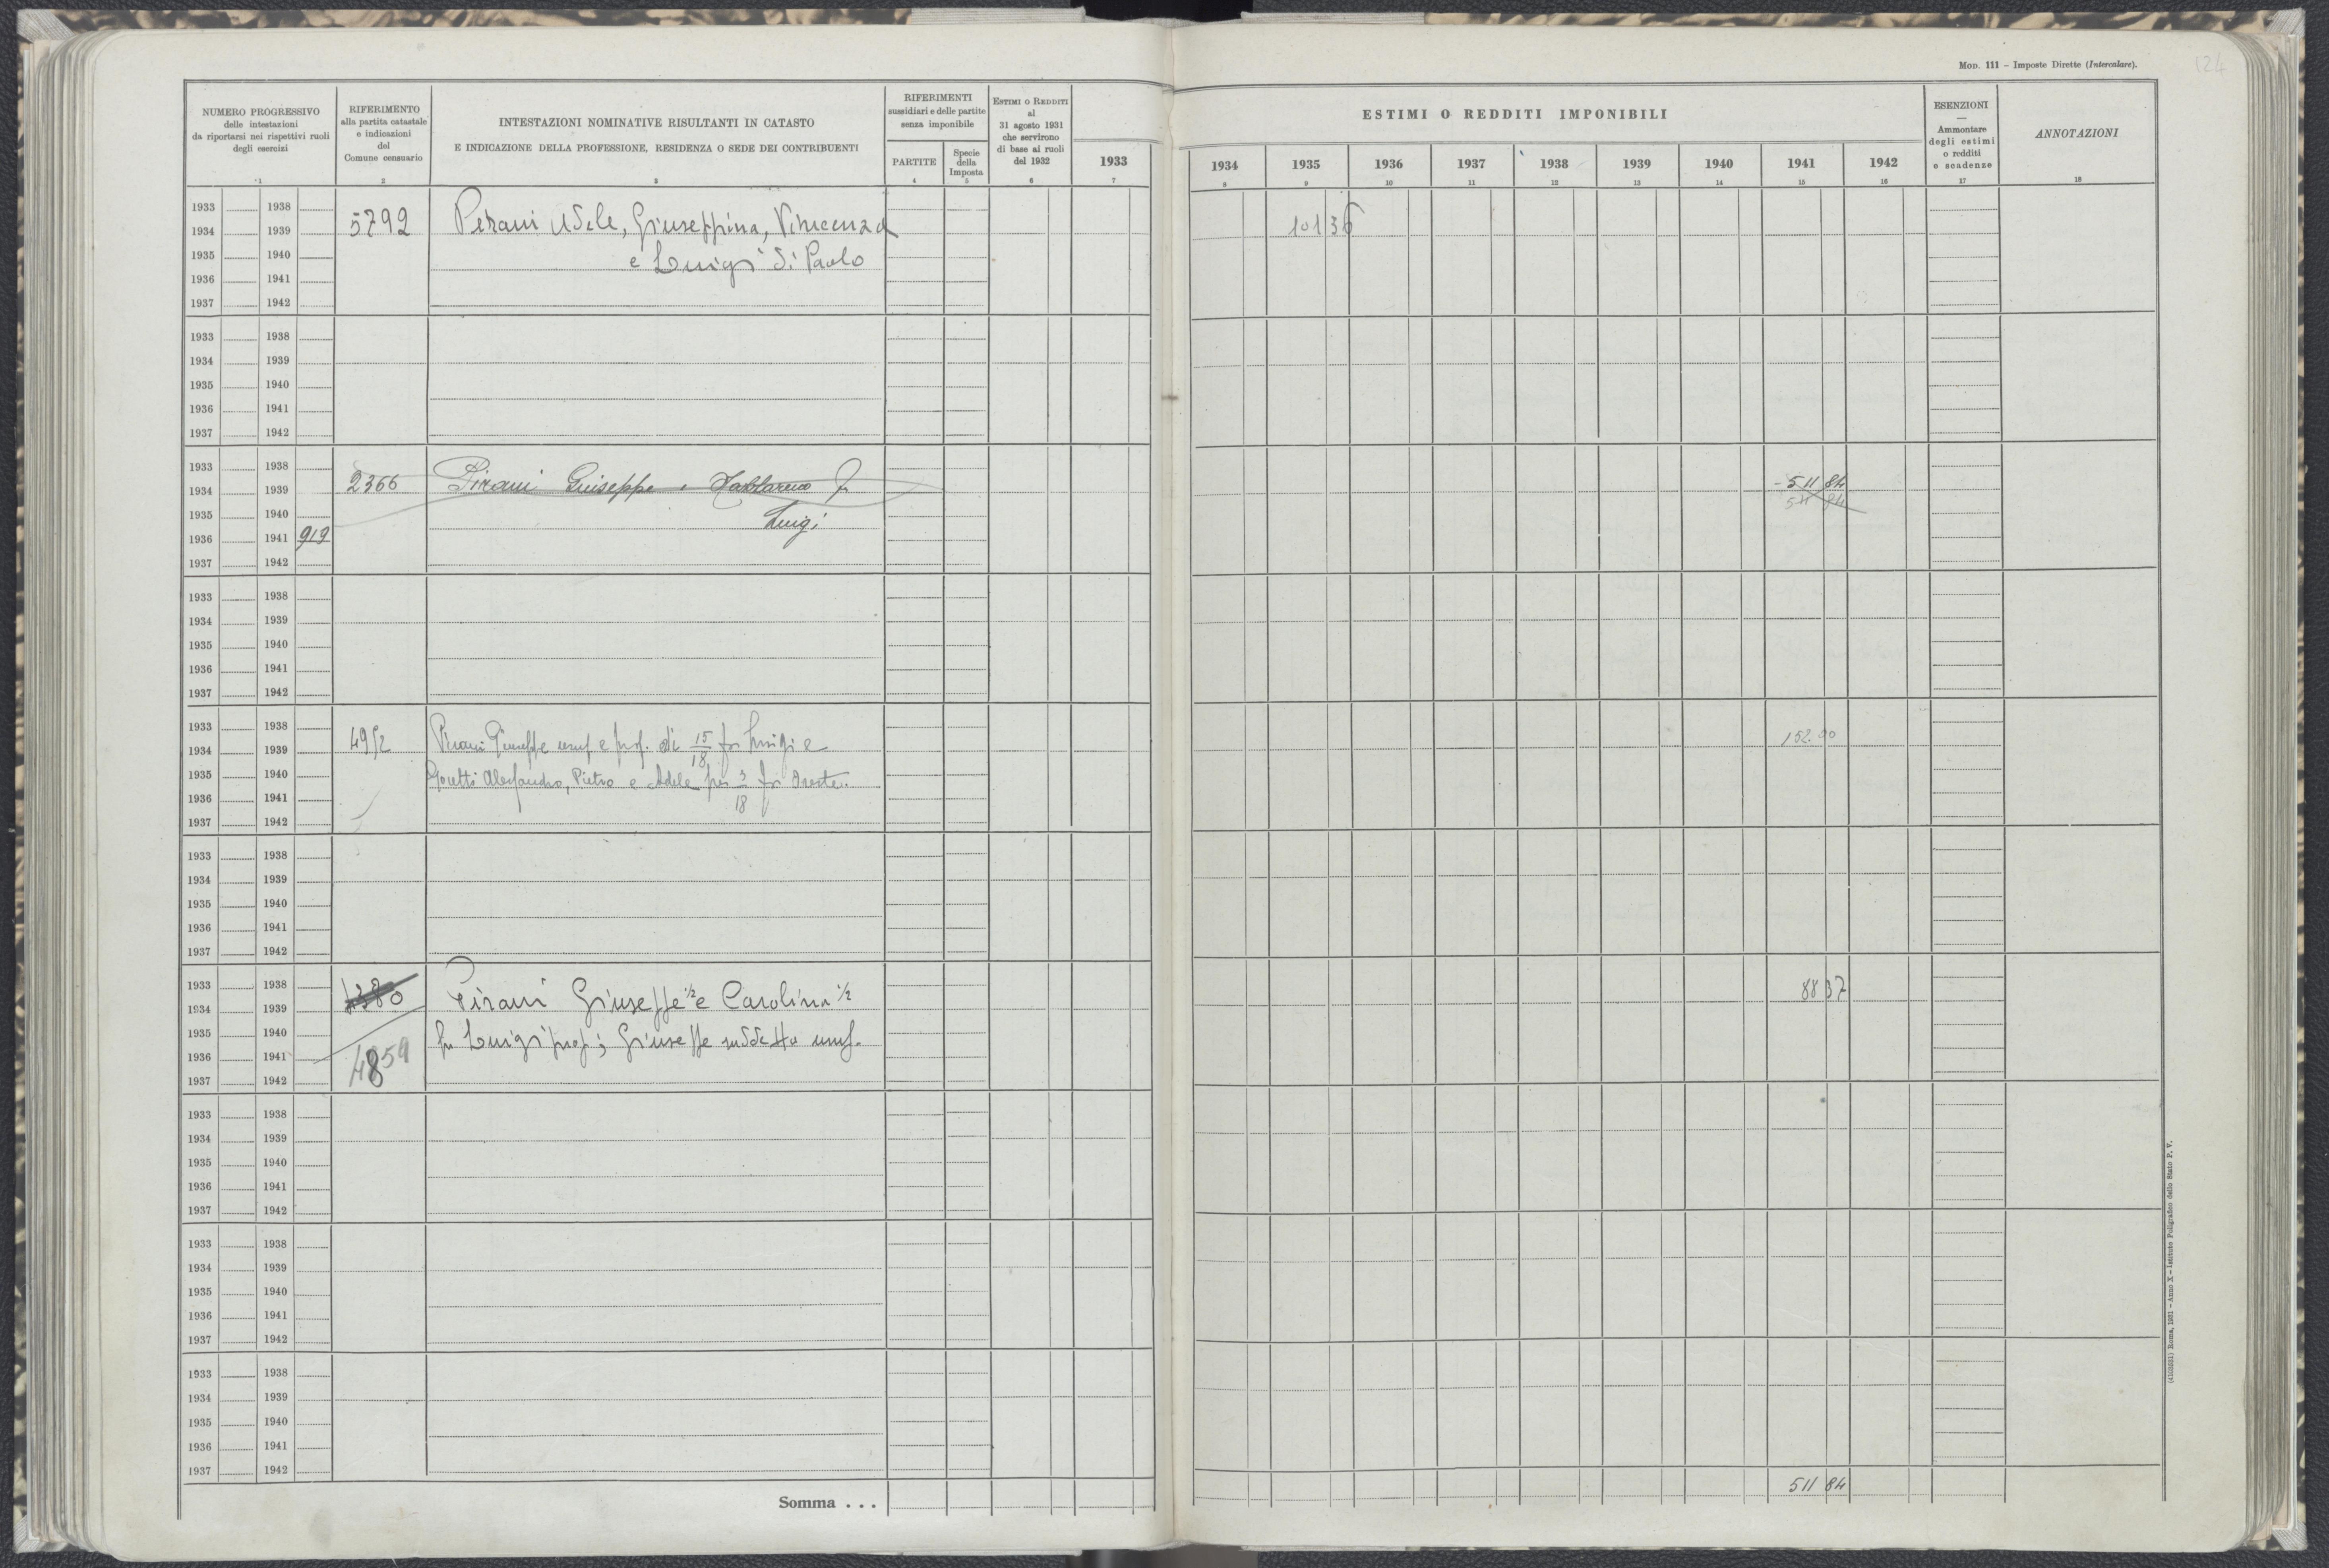 Mod. 111 – Imposte Dirette (Intercalare).
124
NUMERO PROGRESSIVO
delle intestazioni
da riportarsi nei rispettivi ruoli
degli esercizi
1
RIFERIMENTO
alla partita catastale
e indicazioni
del
Comune censuario
2
INTESTAZIONI NOMINATIVE RISULTANTI IN CATASTO
E INDICAZIONE DELLA PROFESSIONE, RESIDENZA O SEDE DEI CONTRIBUENTI
3
RIFERIMENTI
sussidiari e delle partite
senza imponibile
PARTITE
4
Specie
della
Imposta
5
Estimi o Redditi
al
31 agosto 1931
che servirono
di base ai ruoli
del 1932
6
1933
7
ESTIMI O REDDITI IMPONIBILI
1934 1935 1936 1937 1938 1939 1940 1941 1942
8 9 10 11 12 13 14 15 16
ESENZIONI
—
Ammontare
degli estimi
o redditi
e scadenze
17
ANNOTAZIONI
18
1933 1938
1934 1939 5792 Pirani Adele, Giuseppina, Vincenza 101 36
1935 1940 e Luigi di Paolo
1936 1941
1937 1942
1933 1938
1934 1939
1935 1940
1936 1941
1937 1942
1933 1938
1934 1939 2366 Pirani Giuseppe fu 511 84
1935 1940 Luigi 511 84
1936 1941 919
1937 1942
1933 1938
1934 1939
1935 1940
1936 1941
1937 1942
1933 1938
1934 1939 4952 Pirani Giuseppe usuf. e prop. di 15/18 fu Luigi e 152.00
1935 1940 Alessandro, Pietro e Adele per 3/18 fu Oreste.
1936 1941
1937 1942
1933 1938
1934 1939
1935 1940
1936 1941
1937 1942
1933 1938 4380 88 37
1934 1939 Pirani Giuseppe 1/2 e Carolina 1/2
1935 1940 fu Luigi prop; Giuseppe suddetto usuf.
1936 1941 4859
1937 1942
1933 1938
1934 1939
1935 1940
1936 1941
1937 1942
1933 1938
1934 1939
1935 1940
1936 1941
1937 1942
1933 1938
1934 1939
1935 1940
1936 1941
1937 1942
Somma . . . 511 84
(4103531) Roma, 1931 – Anno X – Istituto Poligrafico dello Stato P. V.